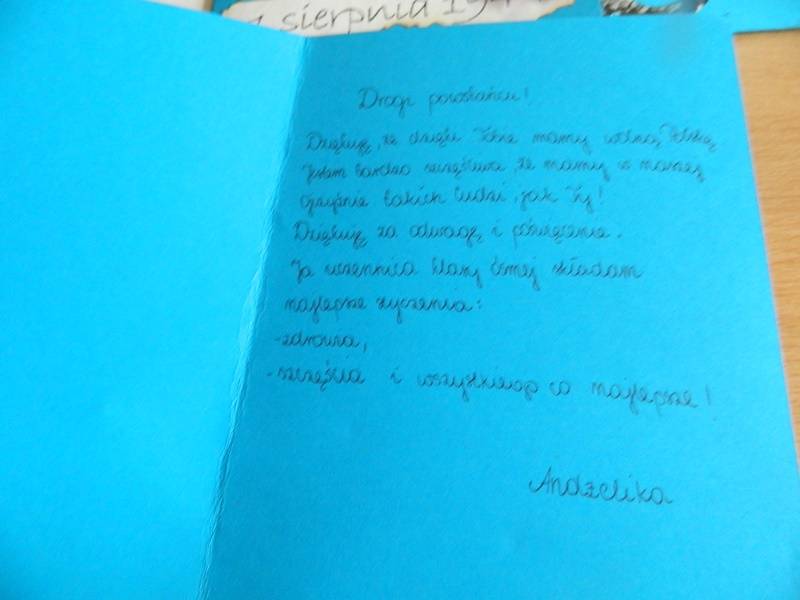 1 sierpnia 19
Drogi powstańcu!
Dziękuję, że dzięki Tobie mamy wolną Polskę
Jestem bardzo szczęśliwa, że mamy w naszej
ojczyźnie takich ludzi, jak Ty!
Dziękuję za odwagę i poświęcenie.
Ja uczennica klasy ósmej składam
najlepsze życzenia:
-zdrowia,
-szczęścia i wszystkiego co najlepsze!
Andżelika